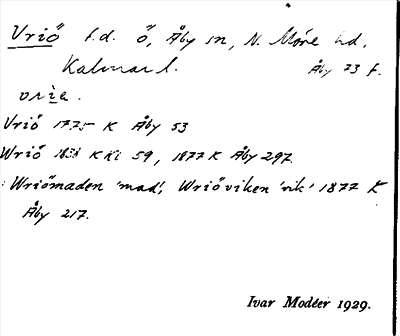 Vriö f.d. ö, Åby sn, N. Möre hd,
Kalmar l. Åby 73 f.
vriè.
Vriö 1775 K Åby 53
Wriö 1838 K Kl 59, 1877 K Åby 297.
Wriömaden 'mad', Wriöviken 'vik' 1877 K
Åby 217.
Ivar Modéer 1929.